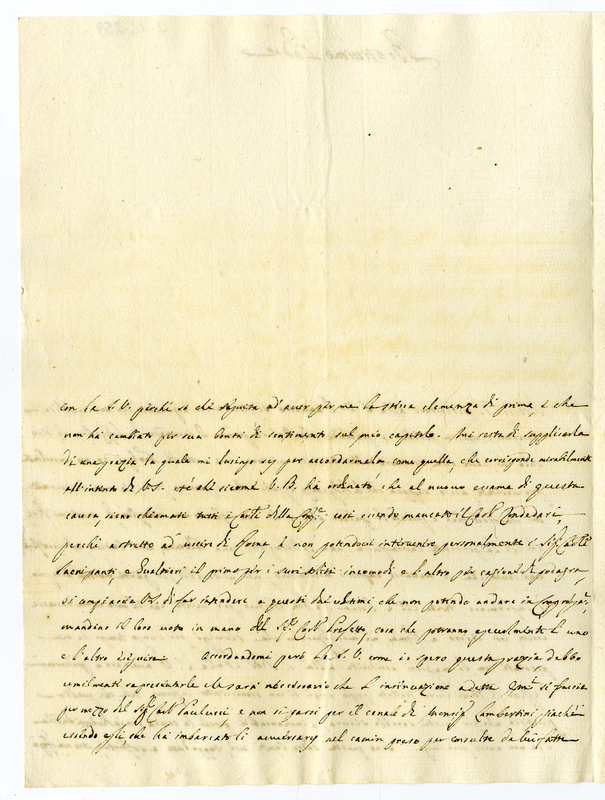 con la S. V. perché so che séguita ad aver per me la stessa clemenza di prima, e che
non ha cambiato per sua bontà di sentimento sul mio capitolo. Mi resta di supplicarla
di una grazia la quale mi lusingo sia per accordarmela come quella, che corrisponde mirabilmente
all'intento di V.S. ed è che siccome V. B. ha ordinato che al nuovo esame di questa
causa, sieno chiamati tutti i Card.li della Cong.ne, così essendo mancato il Card.
perché astretto ad uscire di Roma, e non potendovi intervenire personalmente i Sig.ri Card.li
Sacripanti, e Gualtieri, il primo per i suoi soliti incomodi, e l'altro per cagione di podagra,
si compiaccia V.S. di far intendere a questi due ultimi, che non potendo andare in Congregaz.ne
mandino il loro voto in mano del Sig. Card. Prefetto, cosa che potranno agevolmente l'uno
e l'altro eseguire. Accordandomi però la S. V. come io spero questa grazia debbo
umilmente rappresentarle che sarà necessario che l'insinuazione a detti si faccia
per mezzo del Sig. Card. Paulucci, e non si passi per il canal di Monsig. Lambertini giaché
essendo egli, che ha imbarcato li avversarj nel camin preso per consulte da lui fatte